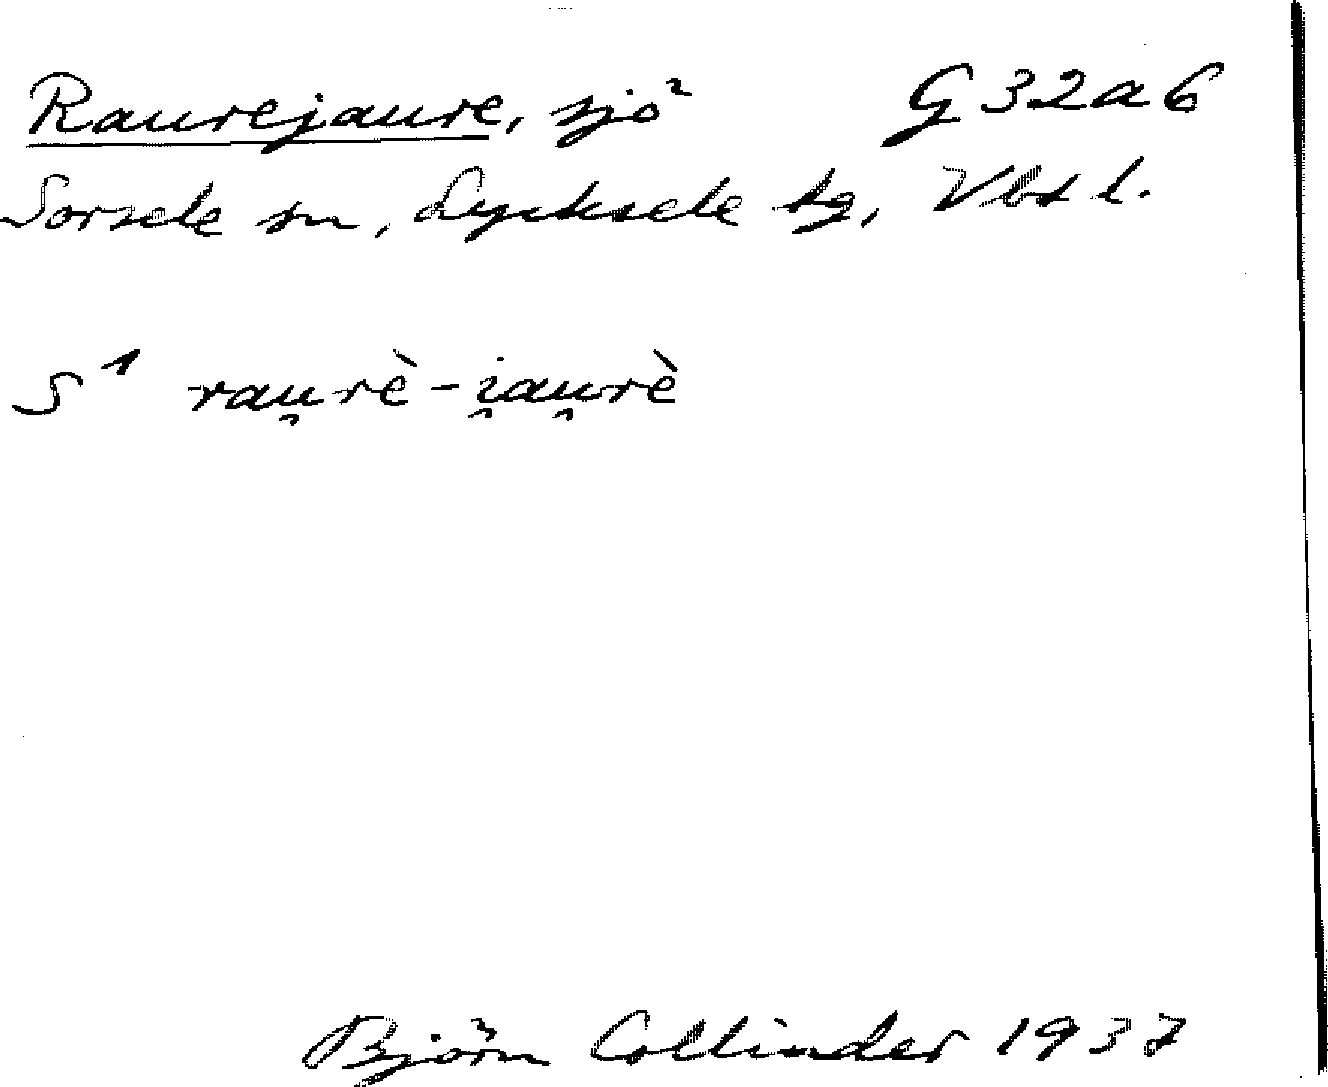 Raurejaure, sjö G 32a6
Sorsele sn, Lycksele tg, Vbt l.
S¹ rau̯rè-i̯au̯rè
Björn Collinder 1937